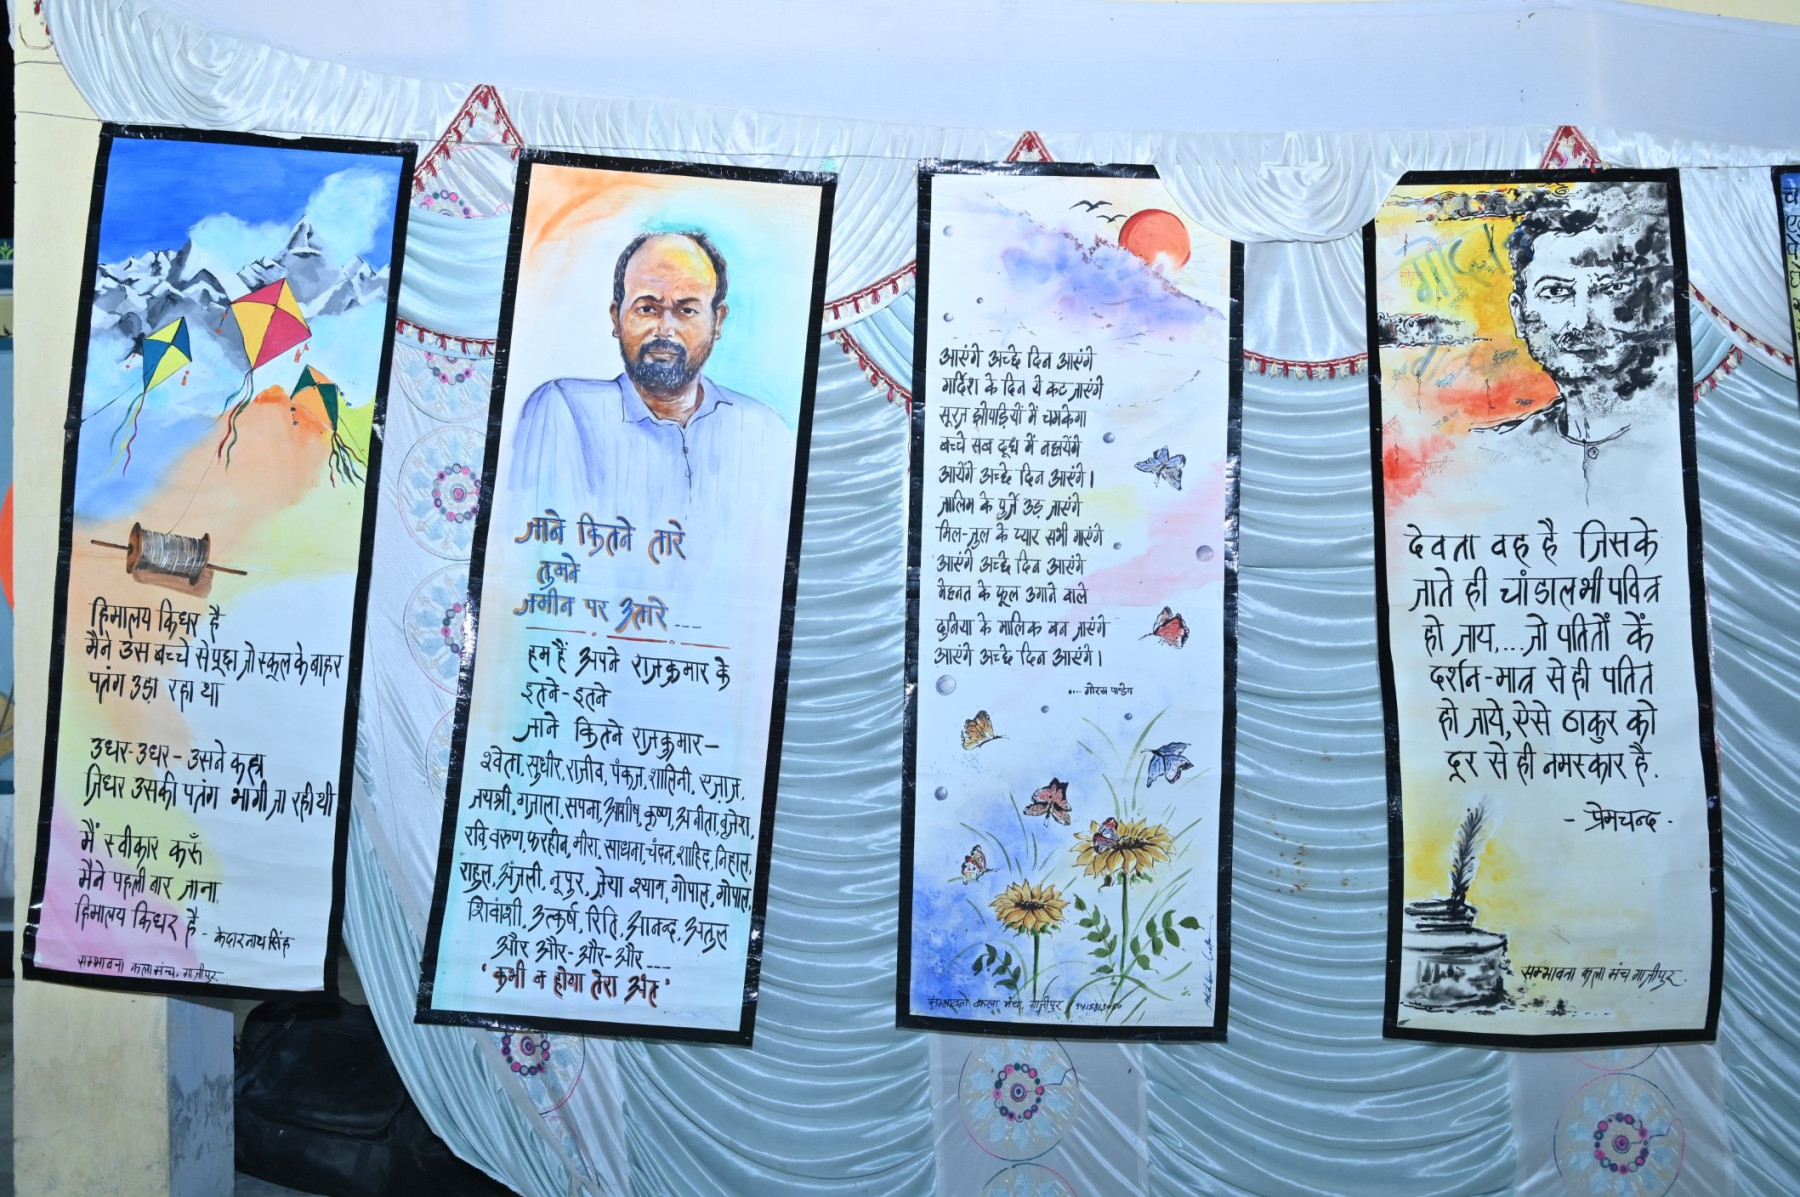 हिमालय किधर है
मैंने उस बच्चे से पूछा जो स्कूल के बाहर
पतंग उड़ा रहा था
उधर-उधर - उसने कहा
जिधर उसकी पतंग भागी जा रही थी
मैं स्वीकार करूँ
मैंने पहली बार जाना
हिमालय किधर है
- केदारनाथ सिंह
सम्भावना कला मंच, गाज़ीपुर
जाने कितने तारे
तुमने
जमीन पर उतारे ....
हम हैं अपने राजकुमार के
इतने-इतने
जाने कितने राजकुमार-
श्वेता, सुधीर, राजीव, पंकज, शालिनी, एज़ाज़,
जयश्री, गज़ाला, सपना, आशीष, कृष्ण, अनीता, बृजेश,
रवि, वरुण, फरहीन, मीरा, साधना, चंदन, शाहिद, निहाल,
राहुल, अंजली, नूपुर, जेया श्याम, गोपाल, गोपाल,
शिवांशी, उत्कर्ष, रिति, आनन्द, अतुल
और और-और-और----
'कभी न होगा तेरा अंत'
आएंगे अच्छे दिन आएंगे
गर्दिश के दिन ये कट जाएंगे
सूरज झोपड़ियों में चमकेगा
बच्चे सब दूध में नहायेंगे
आयेंगे अच्छे दिन आएंगे।
जालिम के पुर्जे उड़ जाएंगे
मिल-जुल के प्यार सभी गाएंगे
आएंगे अच्छे दिन आएंगे
मेहनत के फूल उगाने वाले
दुनिया के मालिक बन जाएंगे
आएंगे अच्छे दिन आएंगे।
.... गोरख पाण्डेय
सम्भावना कला मंच, गाज़ीपुर
देवता वह है जिसके
जाते ही चांडाल भी पवित्र
हो जाय,...जो पतितों कें
दर्शन-मात्र से ही पतित
हो जाये, ऐसे ठाकुर को
दूर से ही नमस्कार है.
- प्रेमचन्द -
सम्भावना कला मंच गाज़ीपुर